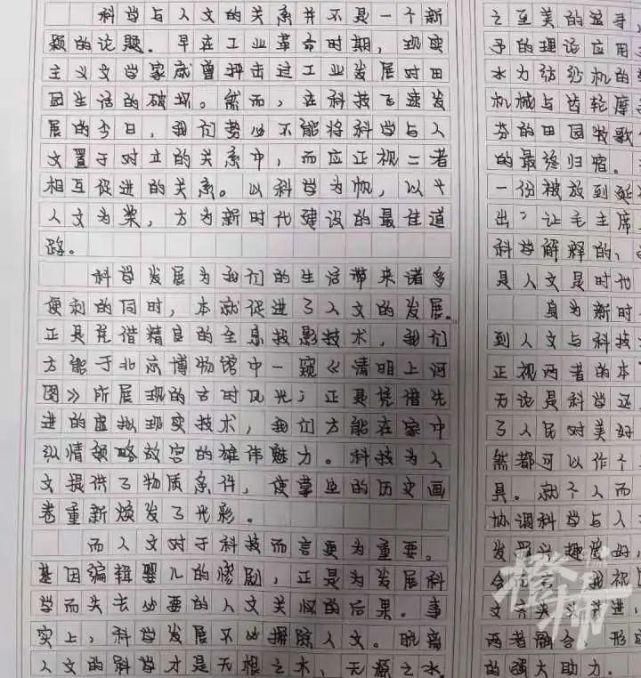 科学与人文的关系并不是一个新
颖的论题。早在工业革命时期，现实
主义文学家就曾抨击过工业发展对田
园生活的破坏。然而，在科技飞速发
展的今日，我们势必不能将科学与人
文置于对立的关系中，而应正视二者
相互促进的关系。以科学为帆，以
人文为桨，方为新时代建设的最佳道
路。
科学发展为我们的生活带来诸多
便利的同时，本就促进了人文的发展。
正是凭借精良的全息投影技术，我们
方能于北京博物馆中一窥《清明上河
图》所展现的古时风光；正是凭借先
进的虚拟现实技术，我们方能在家中
纵情领略故宫的雄伟魅力。科技为人
文提供了物质条件，使掌上的历史画
卷重新焕发了光彩。
而人文对于科技而言更为重要。
基因编辑婴儿的惨剧，正是为发展科
学而失去必要的人文关怀的后果。事
实上，科学发展不必摒除人文。脱离
人文的科学才是无根之木，无源之水
之至美的
予的理论应用
水力纺纱机的
机械与齿轮摩
芬的田园牧歌
的最终归宿。
一份被放到
出？让毛主席
科学解释的、
是人文是时代
身为新时
到人文与科技
正视两者的本
无论是科学还
了人民对美好
然都可以作个
具。就个人而
协调科学与人
发置兴趣爱好
我视
文齐头并进
两者融合 形
的强大助力。
橙柿